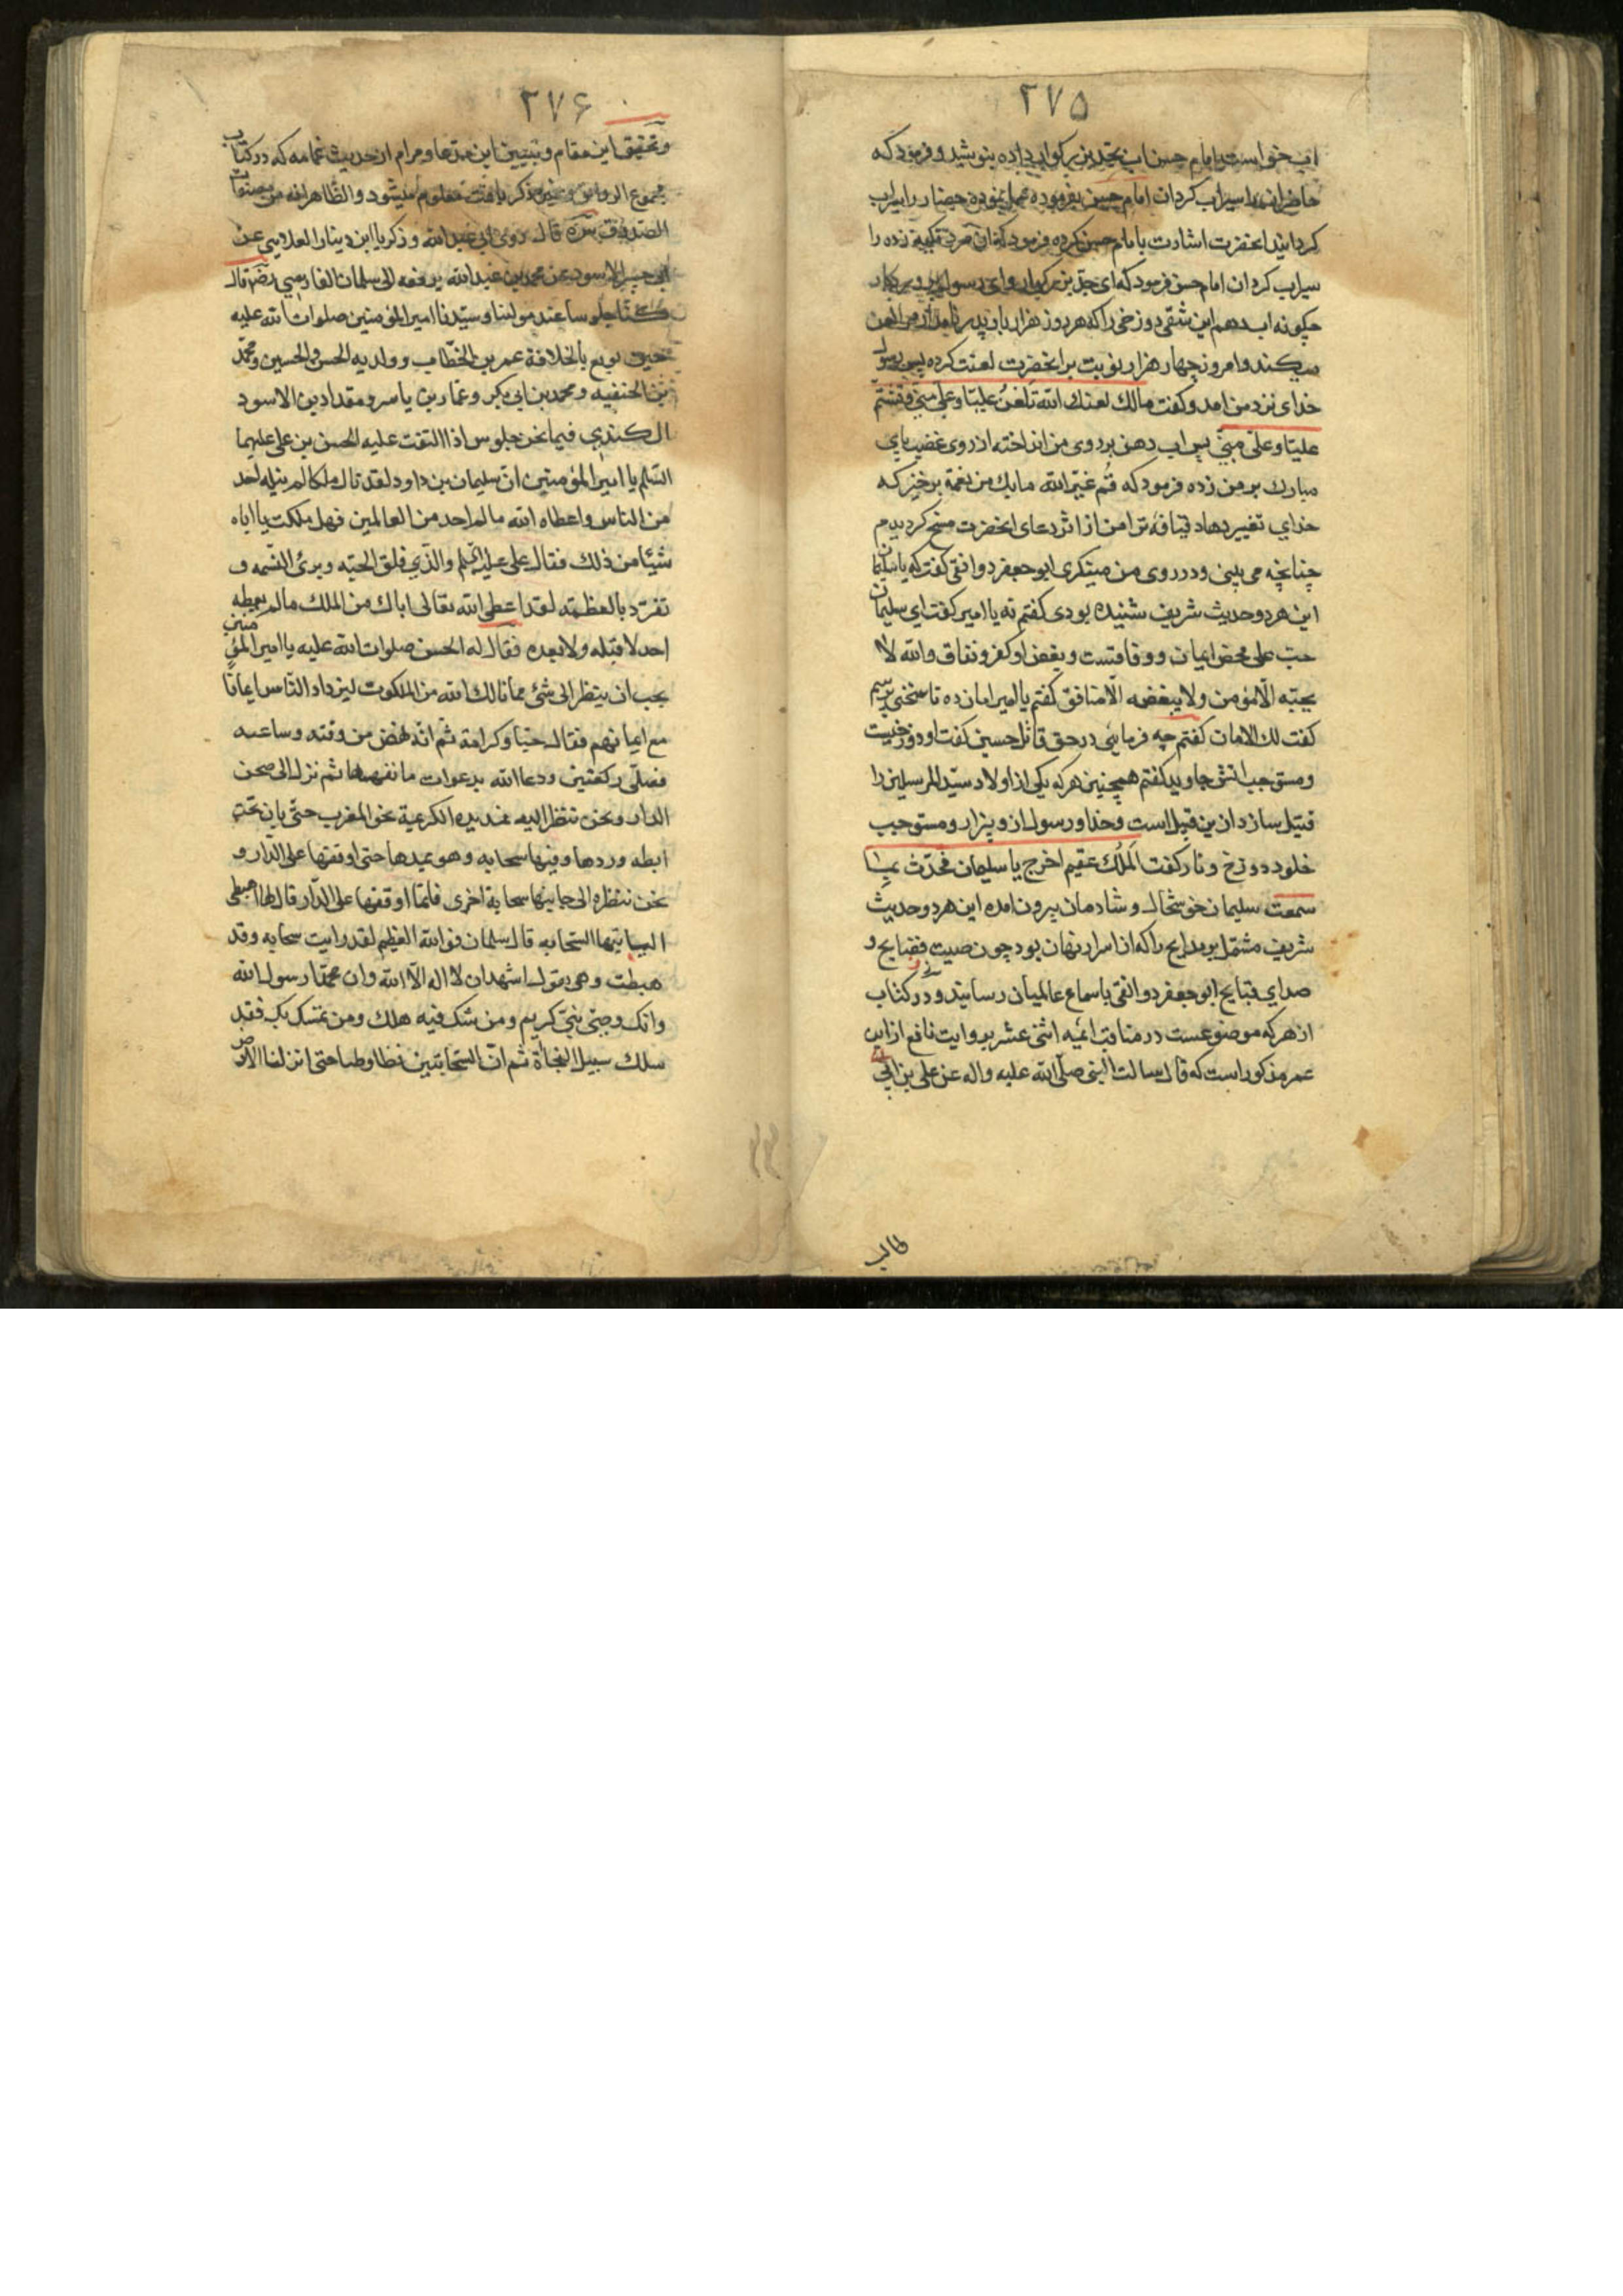 ۲۷۵
اب خواست امام حسن اب بجد بزرکوار داده بنوشید و فرمود که
حاضرانرا سیراب کردان امام حسن بفرموده عمل نموده حضار را سیراب
کردانید انحضرت اشارت بامام حسن کرده فرمود که ان مرد تکیه زده را
سیراب کردان امام حسن فرمود که ای جد بزرکوار وای رسول پروردکار
چکونه اب دهم این شقی دوزخی را که هر روز هزار بار پدر نامدار مرا لعن
میکند و امروز چهار هزار نوبت بر انحضرت لعنت کرده پس رسول
خدای نزد من امد و کفت مالك لعنك الله تلعن علیّا وعلیّ منّی وتشتم
علیّا وعلیّ منّی پس اب دهن بر روی من انداخته از روی غضب پای
مبارك بر من زده فرمود که قُم غیّر الله ما بك من نعمة برخیز که
خدای تغییر دهاد قیافه ترا من از اثر دعای انحضرت مسخ کردیدم
چنانچه می بینی و در روی من مینکری ابو جعفر دوانقی کفت که یا سلیمان
این هر دو حدیث شریف شنیده بودی کفتم نه یا امیر کفت ای سلیمان
حبّ علی محض ایمان و وفاقست و بغض او کفر و نفاق والله لا
یحبّه الّا مؤمن ولا یبغضه الّا منافق کفتم یا امیر امان ده تا سخنی پرسیم
کفت لك الامان کفتم چه فرمائی در حق قاتل حسین کفت او دوزخیست
و مستوجب اتش جاوید کفتم همچنین هر که یکی از اولاد سیّد المرسلین را
قتیل سازد از این قبیل است و خدا و رسول از و بیزار و مستوجب
خلود دوزخ و نار کفت اَلمُلك عقیم اخرج یا سلیمان فحدّث بما
سمعت سلیمان خوشحال و شادمان بیرون امده این هر دو حدیث
شریف مشتمل بر مدایح را که از اسرار نهان بود چون صیت فضایح و
صدای قبایح ابو جعفر دوانقی باسماع عالمیان رسانید و در کتاب
ازهر که موضوعست در مناقب ائمه اثنی عشر بروایت نافع از ابن
عمر مذکور است که قال سالت النبی صلّی الله علیه واله عن علی بن ابی
طالب
۲۷۶
و تحقیق این مقام و تبیین این مدعا و مرام از حدیث غمامه که در کتاب
مجموع الروایق و غیره ذکر یافته معلوم میشود و الظّاهر انه من مصنفات
الصّدوق سره قال روی ابی عبد الله و ذکریا ابن دینار العلا وسی عن
ابی جبیر الاسود عن محمد بن عبد الله یرفعه الی سلمان الفارسی رضه قال
کنّا جلوسا عند مولینا وسیّدنا امیر المؤمنین صلوات الله علیه
حین بویع بالخلافة عمر بن الخطّاب و ولدیه الحسن والحسین ومحمّد
بن الحنفیه ومحمد بن ابی بکر وعمّار بن یاسر ومقداد بن الاسود
الکندی فیما نحن جلوس اذا التفت علیه الحسن بن علی علیهما
السّلم یا امیر المؤمنین انّ سلیمان بن داود لقد نال ملکا لم ینله احد
من الناس واعطاه الله ما لم احد من العالمین فهل ملکت یا اباه
شیئا من ذلك فقال علی علیه السّلم والّذی فلق الحبّه وبرئ النّسمه و
تفرّد بالعظمته لقد اعطی الله تعالی اباك من الملك ما لم یعطه
احد لا قبله ولا بعده فقال له الحسن صلوات الله علیه یا امیر المؤمنین
یجب ان ینظر الی شئ ممّا نالك الله من الملکوت لیزداد النّاس ایمانًا
مع ایمانهم فقال حبّا وکرامة ثمّ انّه نهض من وقته وساعته
فصلّی رکعتین ودعا الله بدعوات ما نفهمها ثم نزل الی صحن
الدار ونحن ننظر الیه فمدیده الکریمة نحو المغرب حتّی بان تحت
ابطه وردها وفیها سحابه وهو یمدها حتی اوقفها علی الدّار و
نحن ننظره الی جانبها سحابة اخری فلمّا اوقفها علی الدّار قال لها اهبطی
الینا ایّتها السّحابه قال سلمان فو الله العظیم لقد رایت سحابه وقد
هبطت وهی تقول اشهد ان لا اله الّا الله وان محمّدا رسول الله
وانك وصی نبیّ کریم ومن شك فیه هلك ومن تمسك بك فقد
سلك سبیل النجاة ثم انّ السّحابتین حتی انزلنا الارض